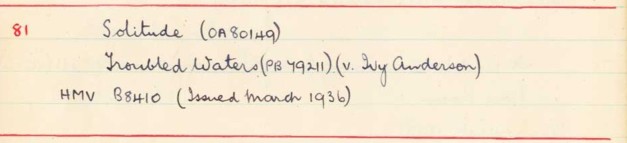 81 Solitude (OA 80149)
Troubled Waters (PB 79211) (v. Ivy Anderson)
HMV B8410 (Issued March 1936)